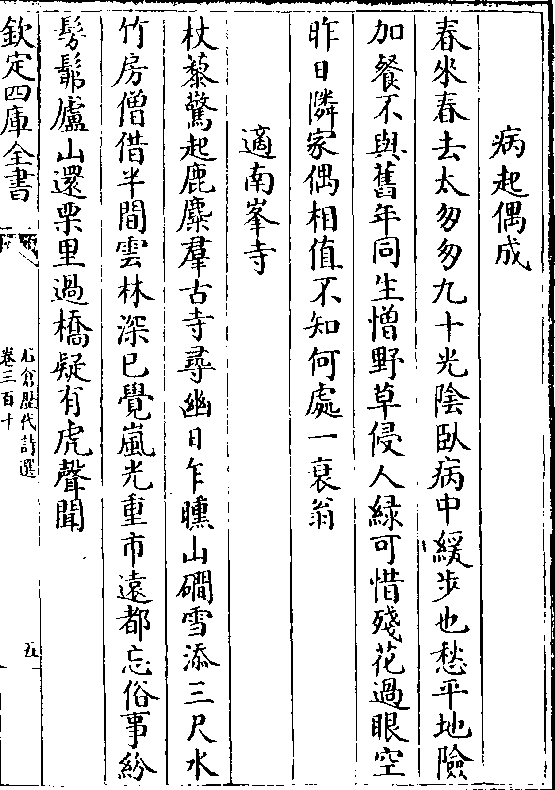 病起偶成
春來春去太匆匆九十光陰臥病中緩步也愁平地險
加餐不與舊年同生憎野草侵人緑可惜殘花過眼空
昨日隣家偶相值不知何處一衰翁
適南峯寺
杖藜驚起鹿麋羣古寺尋幽日乍曛山磵雪添三尺水
竹房僧借半間雲林深已覺嵐光重市遠都忘俗事紛
髣髴廬山還栗里過橋疑有虎聲聞
欽定四庫全書
卷三百十
歴代詩選
五